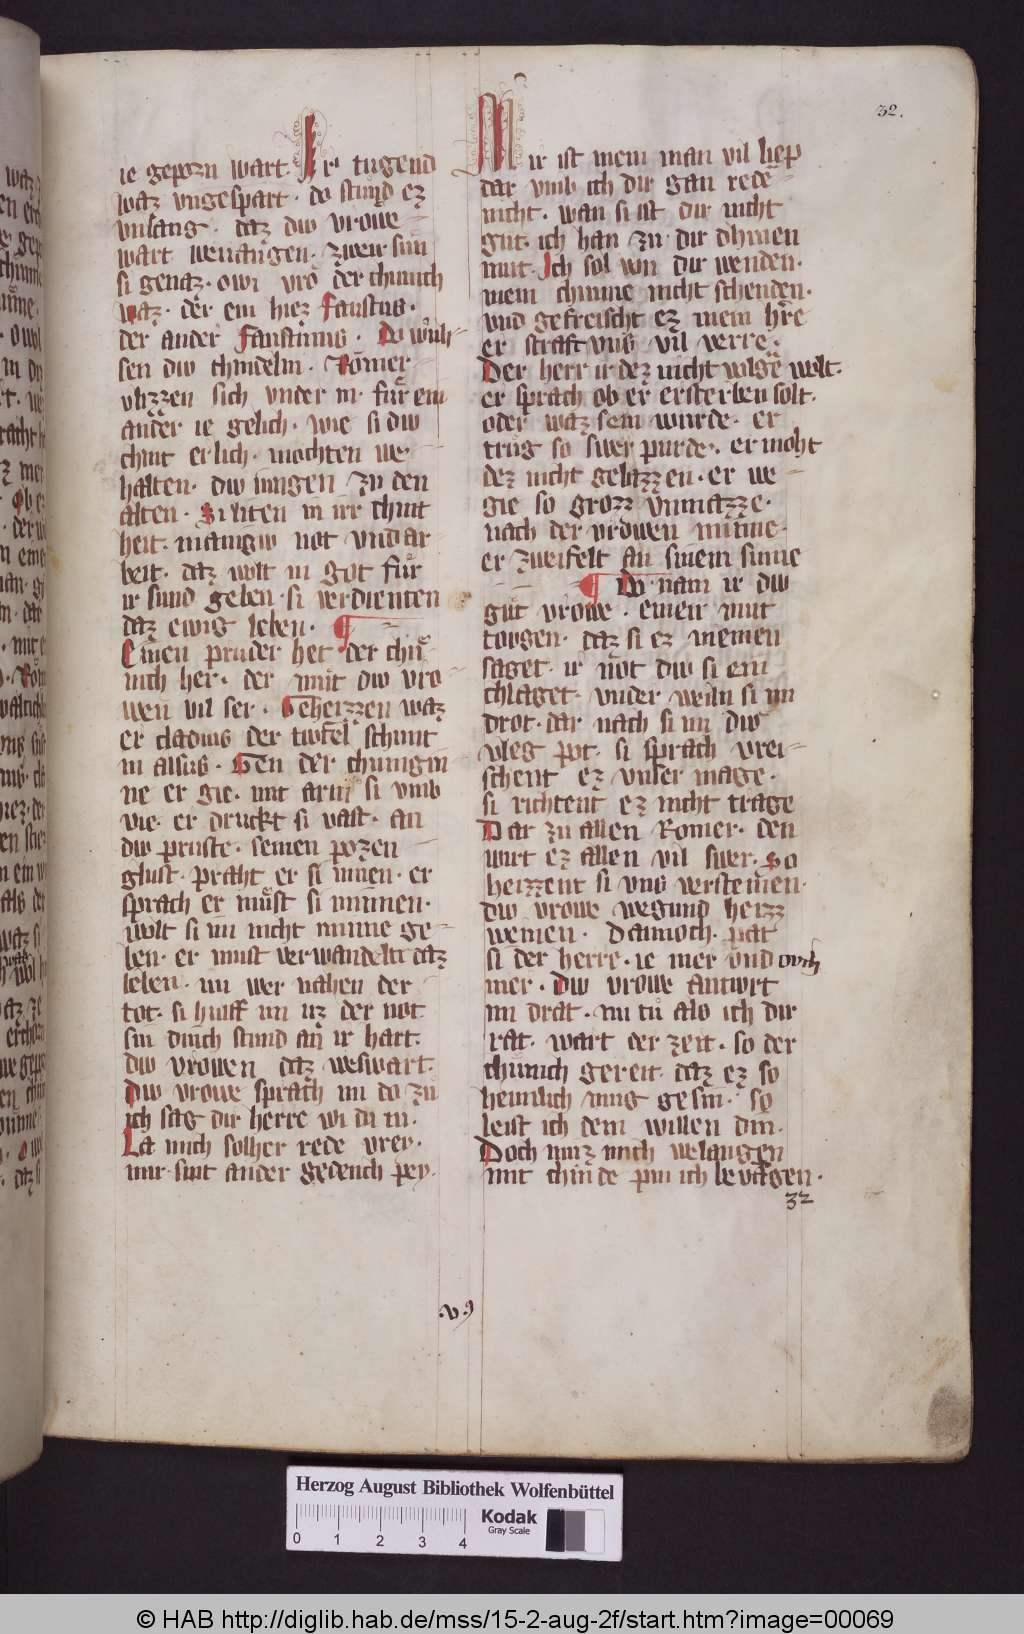 32.
ie geporn wart. Ir tugend
waz vngespart. do stůnd ez
vnlang. daz diw vrowe
wart
si genaz. owi vro der chunich
waz. der ein hiez Faustus.
der ander Faustinus. Do
sen diw chindelin. Romer
vlizzen sich vnder in. fůr ein
ander ie gelich. wie si diw
chint erlich. mochten we
halten. diw iungen zu den
alten. Si liten in irr chint
heit. manigiw not vnd ar
beit. daz wolt in got fůr
ir sund geben. si verdienten
daz ewig leben. ¶
Einen pruder het der chů
nich her. der mint diw vro
wen vil ser. Geherzzen waz
er cladius der tiwfel schunt
in alsus. Gen der chunigin
ne er gie. mit arm si vmb
vie. er druckt si vast. an
diw pruste. seinen pozen
glust. praht er si innen. er
sprach er můst si minnen.
wolt si in nicht minne ge
ben. er must verwandeln daz
leben. im wer nahen der
tot. si hulff im uz der not
sin dinch stund an ir hart.
diw vrowen daz weswart.
Diw vrowe sprach im do zů
ich sag dir herre wi du in.
La mich solher rede vrey.
mir sint ander gedench pey.
Mir ist mein man vil liep
dar vmb ich dir gan rede
nicht. wan si ist dir nicht
gut. ich han zu dir dheinen
mut. Ich sol von dir wenden.
mein chunne nicht schenden.
vnd gefreischt ez mein herre
er straft vns vil verre.
Der herr ir dez nicht volge wolt.
er sprach ob er ersterben solt.
oder waz sein wurde. er
trůg so swer purde. er moht
dez nicht gelazzen. er we
gie so grozz vnmazze.
nach der vrowen minne.
er zweifelt an sinem sinne
¶ Do nam ir diw
gůt vrowe. einen mut
tougen. daz si ez niemen
saget. ir not diw si ein
chlaget. vnder weiln si im
drot. dar nach si im diw
vleg pot. si sprach vrei
schent ez vnser mage.
si richtent ez nicht trage
Dar zu allen Romer. den
wirt ez allen vil swer. So
heizzent si vns versteinen.
diw vrowe wegund heizz
weinen. Dannoch. pat
si der herre. ie mer vnd ouch
mer. Diw vrowe antwrt
im drat. nu tů als ich dir
rat. wart der zeit. so der
chunich gereit. daz ez so
heimlich mug gesin. so
leist ich dem willen din.
Doch muz mich welangen
mit chinde pin ich bevangen.
32
.v.9
Herzog August Bibliothek Wolfenbüttel
0 1 2 3 4
Kodak
Gray Scale
© HAB http://diglib.hab.de/mss/15-2-aug-2f/start.htm?image=00069